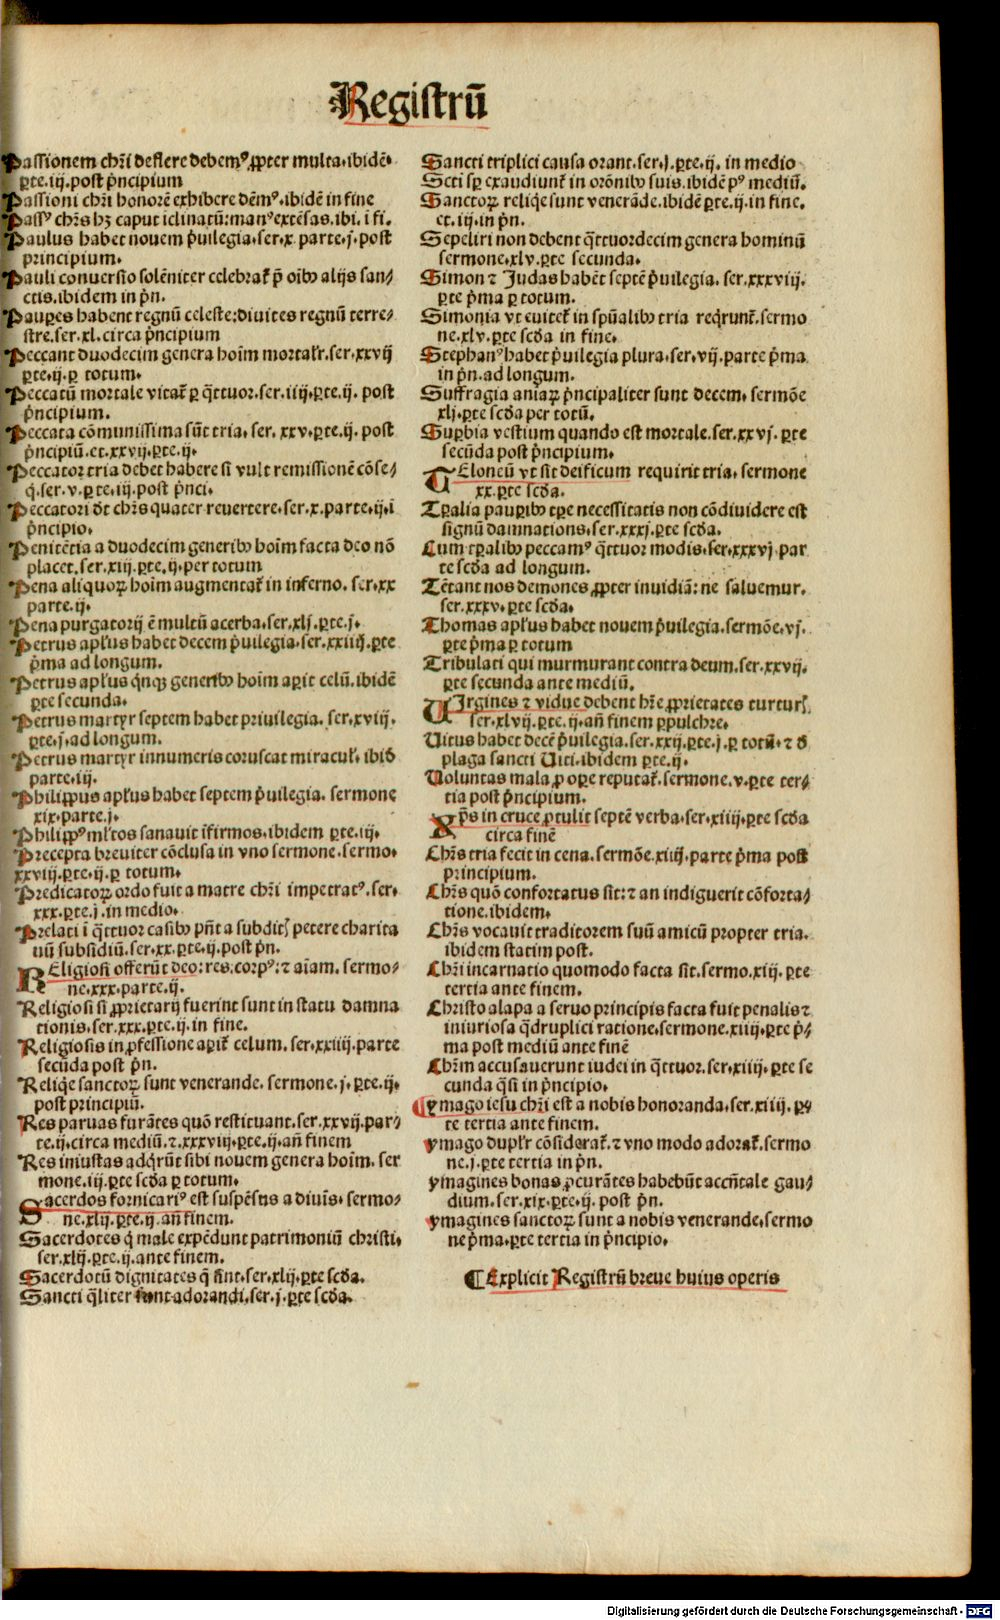 Registrū
Passionem chr̄i deflere debemꝰ ꝓpter multa. ibidē.
ꝑte. iij. post p̄ncipium
Passioni chr̄i honorē exhibere dēmꝰ. ibidē in fine
Passꝰ chr̄s hꝫ caput īclinatū: manꝰ extēsas. ibi. ī fi.
Paulus habet nouem p̄uilegia. ser. x. parte. j. post
principium.
Pauli conuersio solēniter celebrat᷑ p̄ oībꝰ alijs san/
ctis. ibidem in pn̄.
Pauꝑes habent regnū celeste: diuites regnū terre/
stre. ser. xl. circa p̄ncipium
Peccant duodecim genera hoīm mortalr̄. ser. xxvij
ꝑte. ij. ꝑ totum.
Peccatū mortale vitat᷑ ꝑ q̄ttuor. ser. iiij. ꝑte. ij. post
p̄ncipium.
Peccata cōmunissima sūt tria. ser. xxv. ꝑte. ij. post
p̄ncipiū. et. xxvij. ꝑte. ij.
Peccator tria debet habere si vult remissionē cōse/
q̄. ser. v. ꝑte. iij. post p̄nci.
Peccatori dt̄ chr̄s quater reuertere. ser. x. parte. ij. ī
p̄ncipio.
Penitētia a duodecim generibꝰ hoīm facta deo nō
placet. ser. xiij. ꝑte. ij. per totum
Pena aliquoꝝ hoīm augmentat᷑ in inferno. ser. xx
parte. ij.
Pena purgatorij ē multū acerba. ser. xlj. ꝑte. j.
Petrus apl'us habet decem p̄uilegia. ser. xxiiij. ꝑte
p̄ma ad longum.
Petrus apl'us q̄nqꝫ generibꝰ hoīm aꝑit celū. ibidē
ꝑte secunda.
Petrus martyr septem habet priuilegia. ser. xviij.
ꝑte. j. ad longum.
Petrus martyr innumeris coruscat miracul'. ibid̄
parte. iij.
Philippus apl'us habet septem p̄uilegia. sermone
xix. parte. j.
Philippꝰ ml'tos sanauit īfirmos. ibidem ꝑte. iij.
Precepta breuiter cōclusa in vno sermone. sermo.
xxviij. ꝑte. ij. ꝑ totum.
Predicatoꝝ ordo fuit a matre chr̄i impetratꝰ. ser.
xxx. ꝑte. j. in medio.
Prelati ī q̄ttuor casibꝰ pn̄t a subditꝭ petere charita
tiuū subsidiū. ser. xx. ꝑte. ij. post pn̄.
REligiosi offerūt deo: res: corpꝰ: ⁊ aīam. sermo/
ne. xxx. parte. ij.
Religiosi si ꝓprietarij fuerint sunt in statu damna
tionis. ser. xxx. ꝑte. ij. in fine.
Religiosis in ꝓfessione aꝑit᷑ celum. ser. xxiiij. parte
secūda post pn̄.
Reliq̄e sanctoꝝ sunt venerande. sermone. j. ꝑte. ij.
post principiū.
Res paruas furātes quō restituant. ser. xxvij. par/
te. ij. circa mediū. ⁊. xxxviij. ꝑte. ij. an̄ finem
Res iniustas adq̄rūt sibi nouem genera hoīm. ser
mone. iij. ꝑte scd̄a ꝑ totum.
SAcerdos fornicariꝰ est suspēsus a diuīs. sermo/
ne. xlij. ꝑte. ij. an̄ finem.
Sacerdotes q̄ male expēdunt patrimoniū christi.
ser. xlij. ꝑte. ij. ante finem.
Sacerdotū dignitates q̄ sint. ser. xlij. ꝑte scd̄a.
Sancti q̄liter sunt adorandi. ser. j. ꝑte scd̄a.
Sancti triplici causa orant. ser. j. ꝑte. ij. in medio
Scti sꝑ exaudiunt᷑ in orōnibꝰ suis. ibidē pꝰ mediū.
Sanctoꝝ reliq̄e sunt venerāde. ibidē ꝑte. ij. in fine.
et. iij. in pn̄.
Sepeliri non debent q̄ttuordecim genera hominū
sermone. xlv. ꝑte secunda.
Simon ⁊ Judas habēt septē p̄uilegia. ser. xxxviij.
ꝑte p̄ma ꝑ totum.
Simonia vt euitet᷑ in spūalibꝰ tria req̄runt᷑. sermo
ne. xlv. ꝑte scd̄a in fine.
Stephanꝰ habet p̄uilegia plura. ser. vij. parte p̄ma
in pn̄. ad longum.
Suffragia aniaꝝ p̄ncipaliter sunt decem. sermōe
xlj. ꝑte scd̄a per totū.
Suꝑbia vestium quando est mortale. ser. xxvj. ꝑte
secūda post p̄ncipium.
TEloneū vt sit deificum requirit tria. sermone
xx. ꝑte scd̄a.
Tꝑalia pauꝑibꝰ tꝑe necessitatis non cōdiuidere est
signū damnationis. ser. xxxj. ꝑte scd̄a.
Cum tꝑalibꝰ peccamꝰ q̄ttuor modis. ser. xxxvj par
te scd̄a ad longum.
Tētant nos demones ꝓpter inuidiā: ne saluemur.
ser. xxxv. ꝑte scd̄a.
Thomas apl'us habet nouem p̄uilegia. sermōe. vj.
ꝑte p̄ma ꝑ totum
Tribulati qui murmurant contra deum. ser. xxvij.
ꝑte secunda ante mediū.
VIrgines ⁊ vidue debent hr̄e ꝓprietates turturꝭ
ser. xlvij. ꝑte. ij. an̄ finem ꝑpulchre.
Vitus habet decē p̄uilegia. ser. xxij. ꝑte. j. ꝑ totū. ⁊ d̄
plaga sancti Viti. ibidem ꝑte. ij.
Voluntas mala ꝓ oꝑe reputat᷑. sermone. v. ꝑte ter/
tia post p̄ncipium.
Xp̄s in cruce ꝓtulit septē verba. ser. xiiij. ꝑte scd̄a
circa finē
Chr̄s tria fecit in cena. sermōe. xiiij. parte p̄ma post
principium.
Chr̄s quō confortatus sit: ⁊ an indiguerit cōforta/
tione. ibidem.
Chr̄s vocauit traditorem suū amicū propter tria.
ibidem statim post.
Chr̄i incarnatio quomodo facta sit. sermo. xiij. ꝑte
tertia ante finem.
Christo alapa a seruo principis facta fuit penalis ⁊
iniuriosa q̄druplici ratione. sermone. xiiij. ꝑte p̄/
ma post mediū ante finē
Chr̄m accusauerunt iudei in q̄ttuor. ser. xiiij. ꝑte se
cunda q̄si in p̄ncipio.
¶ ymago iesu chr̄i est a nobis honoranda. ser. xiiij. ꝑ
te tertia ante finem.
ymago dupl'r cōsiderat᷑. ⁊ vno modo adorat᷑. sermo
ne. j. ꝑte tertia in pn̄.
ymagines bonas ꝓcurātes habebūt accn̄tale gau/
dium. ser. xix. ꝑte. ij. post pn̄.
ymagines sanctoꝝ sunt a nobis venerande. sermo
ne p̄ma. ꝑte tertia in p̄ncipio.
¶ Explicit Registrū breue huius operis
Digitalisierung gefördert durch die Deutsche Forschungsgemeinschaft - DFG